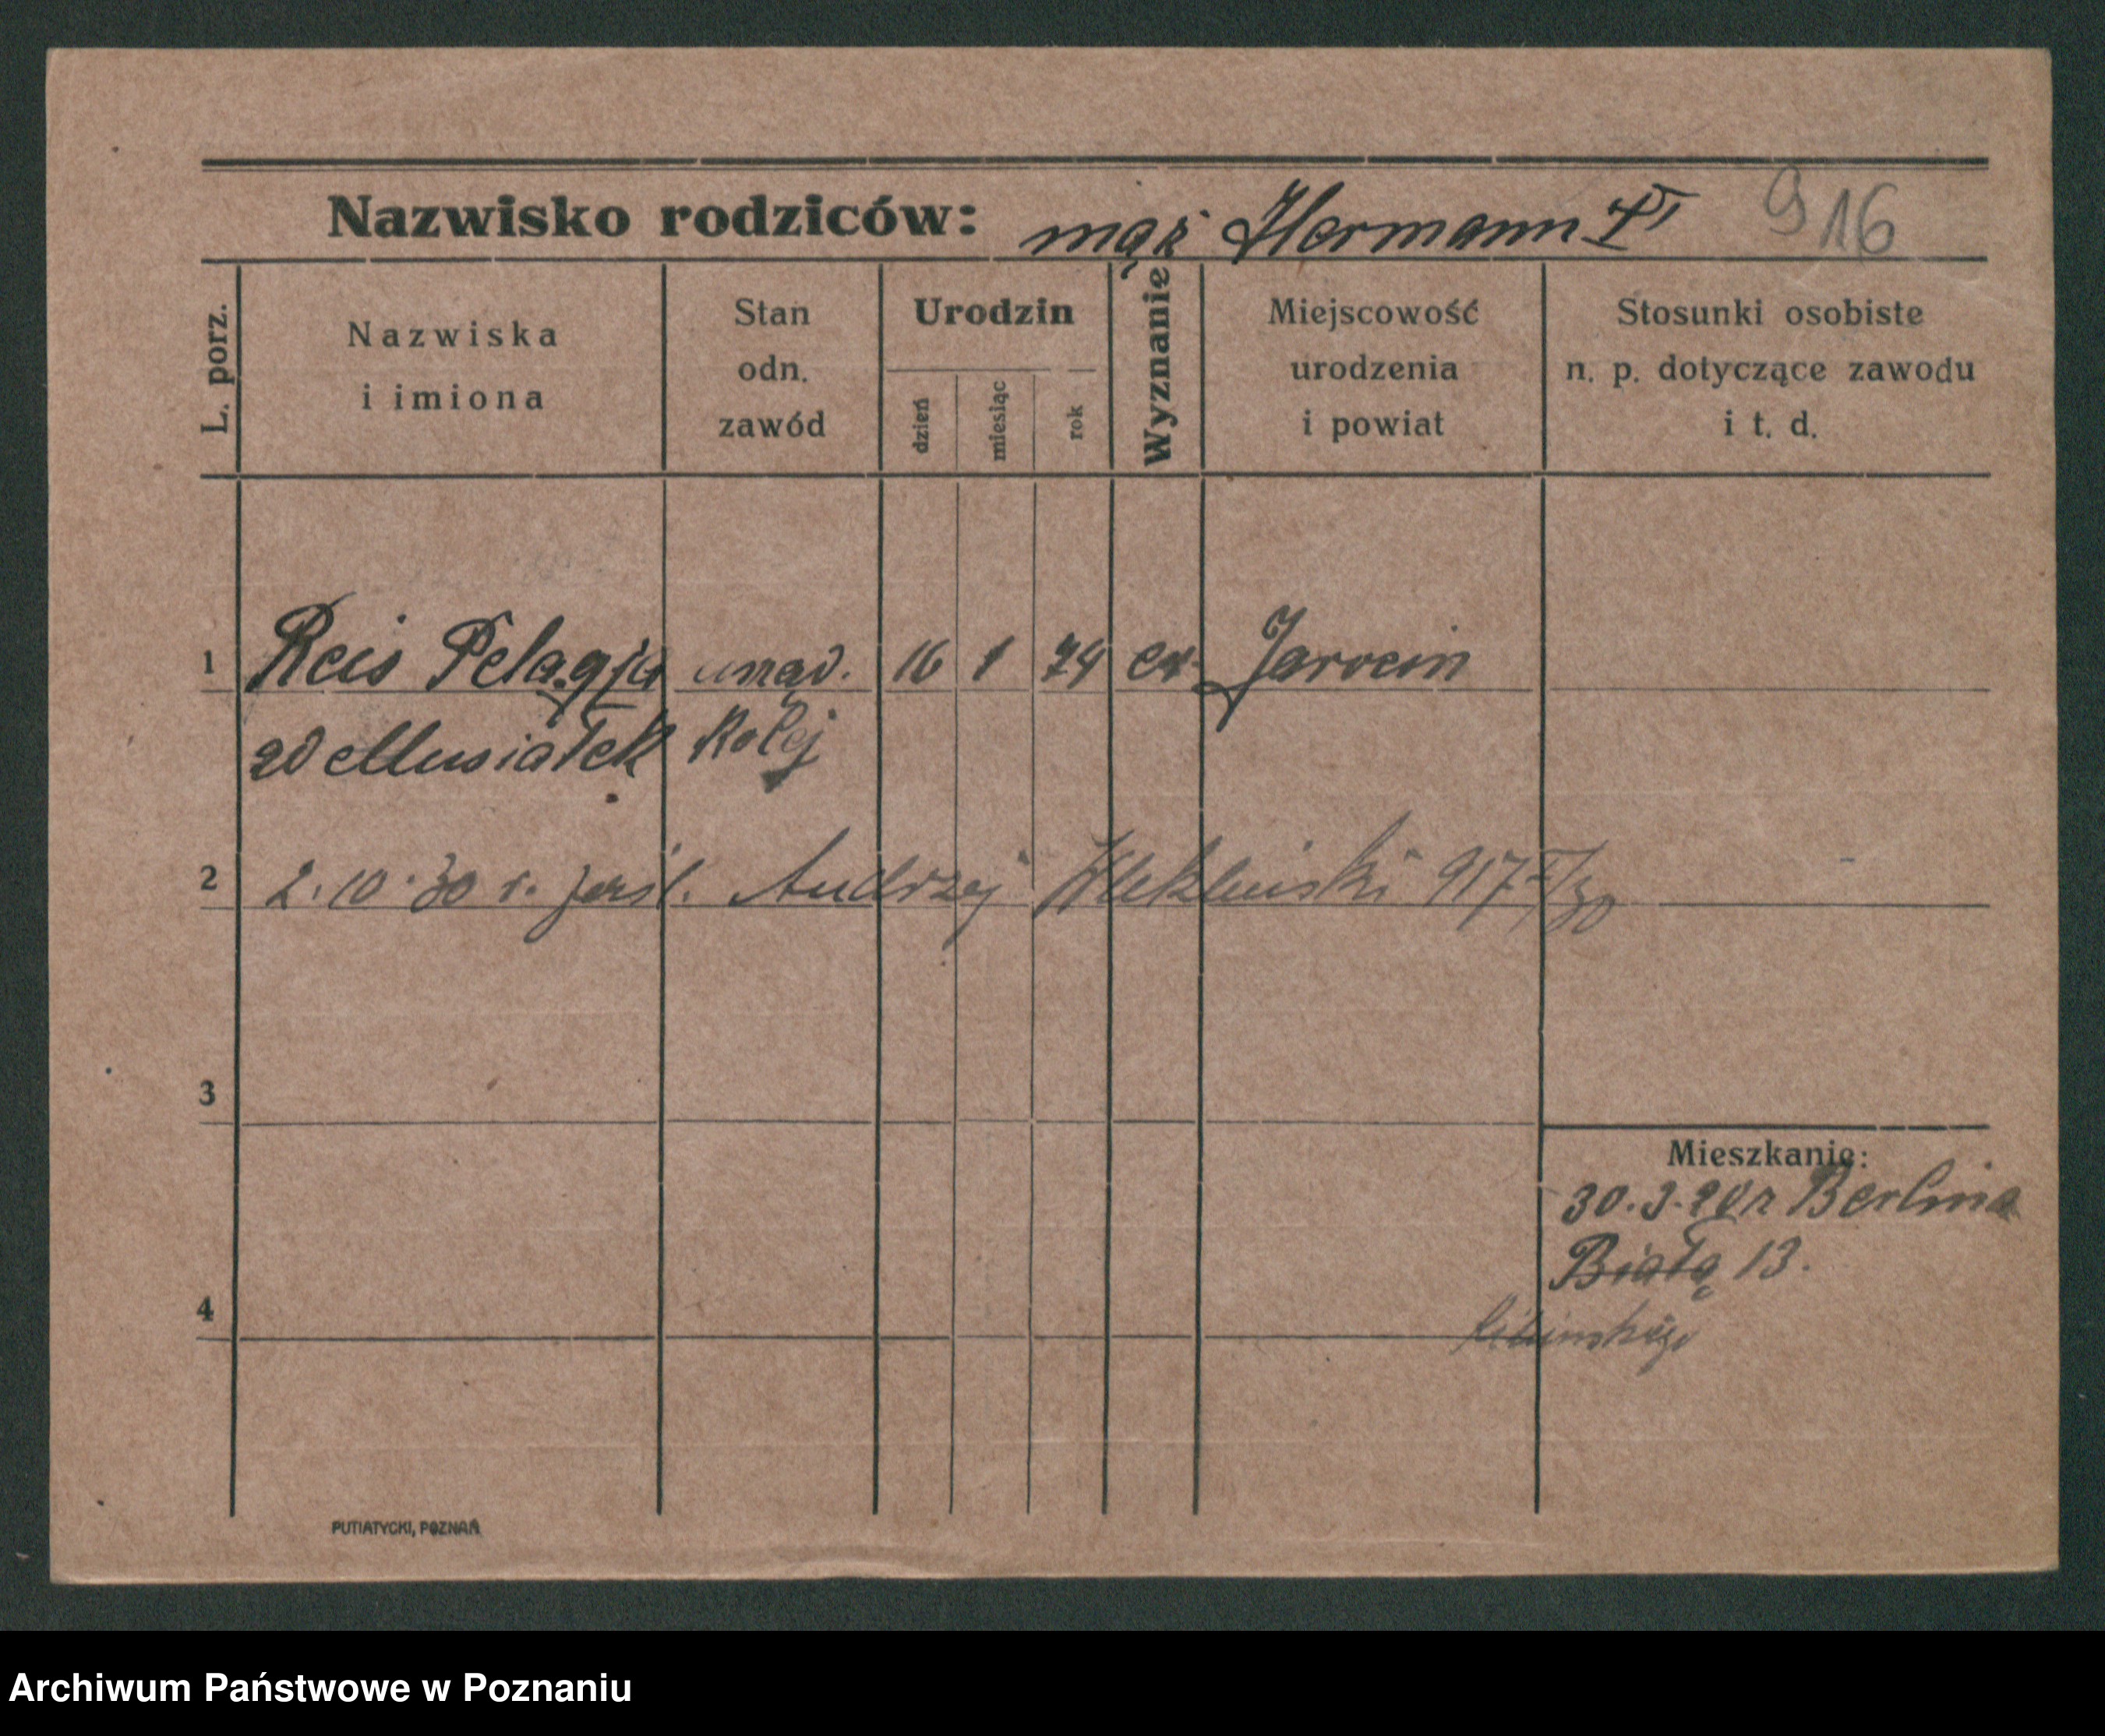 Nazwisko rodziców: mąż Hermann 916
L. porz.
Nazwiska
i imiona
Stan
odn.
zawód
Urodzin
dzień
miesiąc
rok
Wyznanie
Miejscowość
urodzenia
i powiat
Stosunki osobiste
n. p. dotyczące zawodu
i t. d.
1 Reis Pelagja 16 1 74 ew. Jarocin
Musiałek Kolej
2 2.10.30 r. Andrzej 917
3
Mieszkanie:
30.3. Berlina
Biała 13.
4
PUTIATYCKI, POZNAŃ
Archiwum Państwowe w Poznaniu